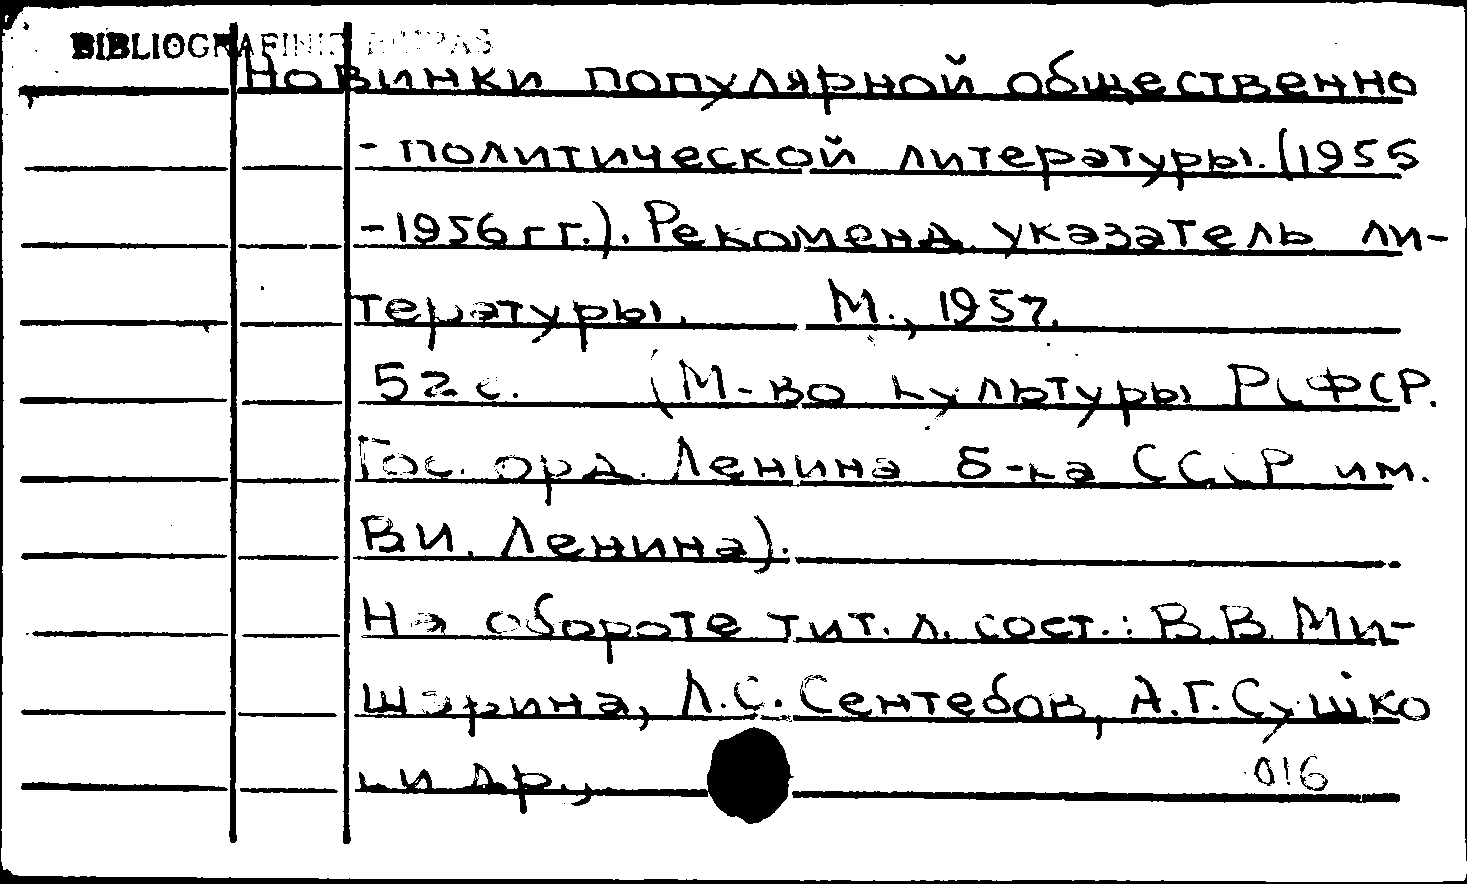 BIBLIOGRAFINIS
Новинки популярной общественно
- политической литературы. (1955
-1956 гг.). Рекоменд. указатель ли-
тературы. М., 1957.
52 с. (М-во культуры РСФСР.
Гос. орд. Ленина б-ка СССР им.
В.И. Ленина).
На обороте тит. л. сост.: В.В. Ми-
шарина, Л.С. Сентебов, А.Г. Сушко
и др.,
016